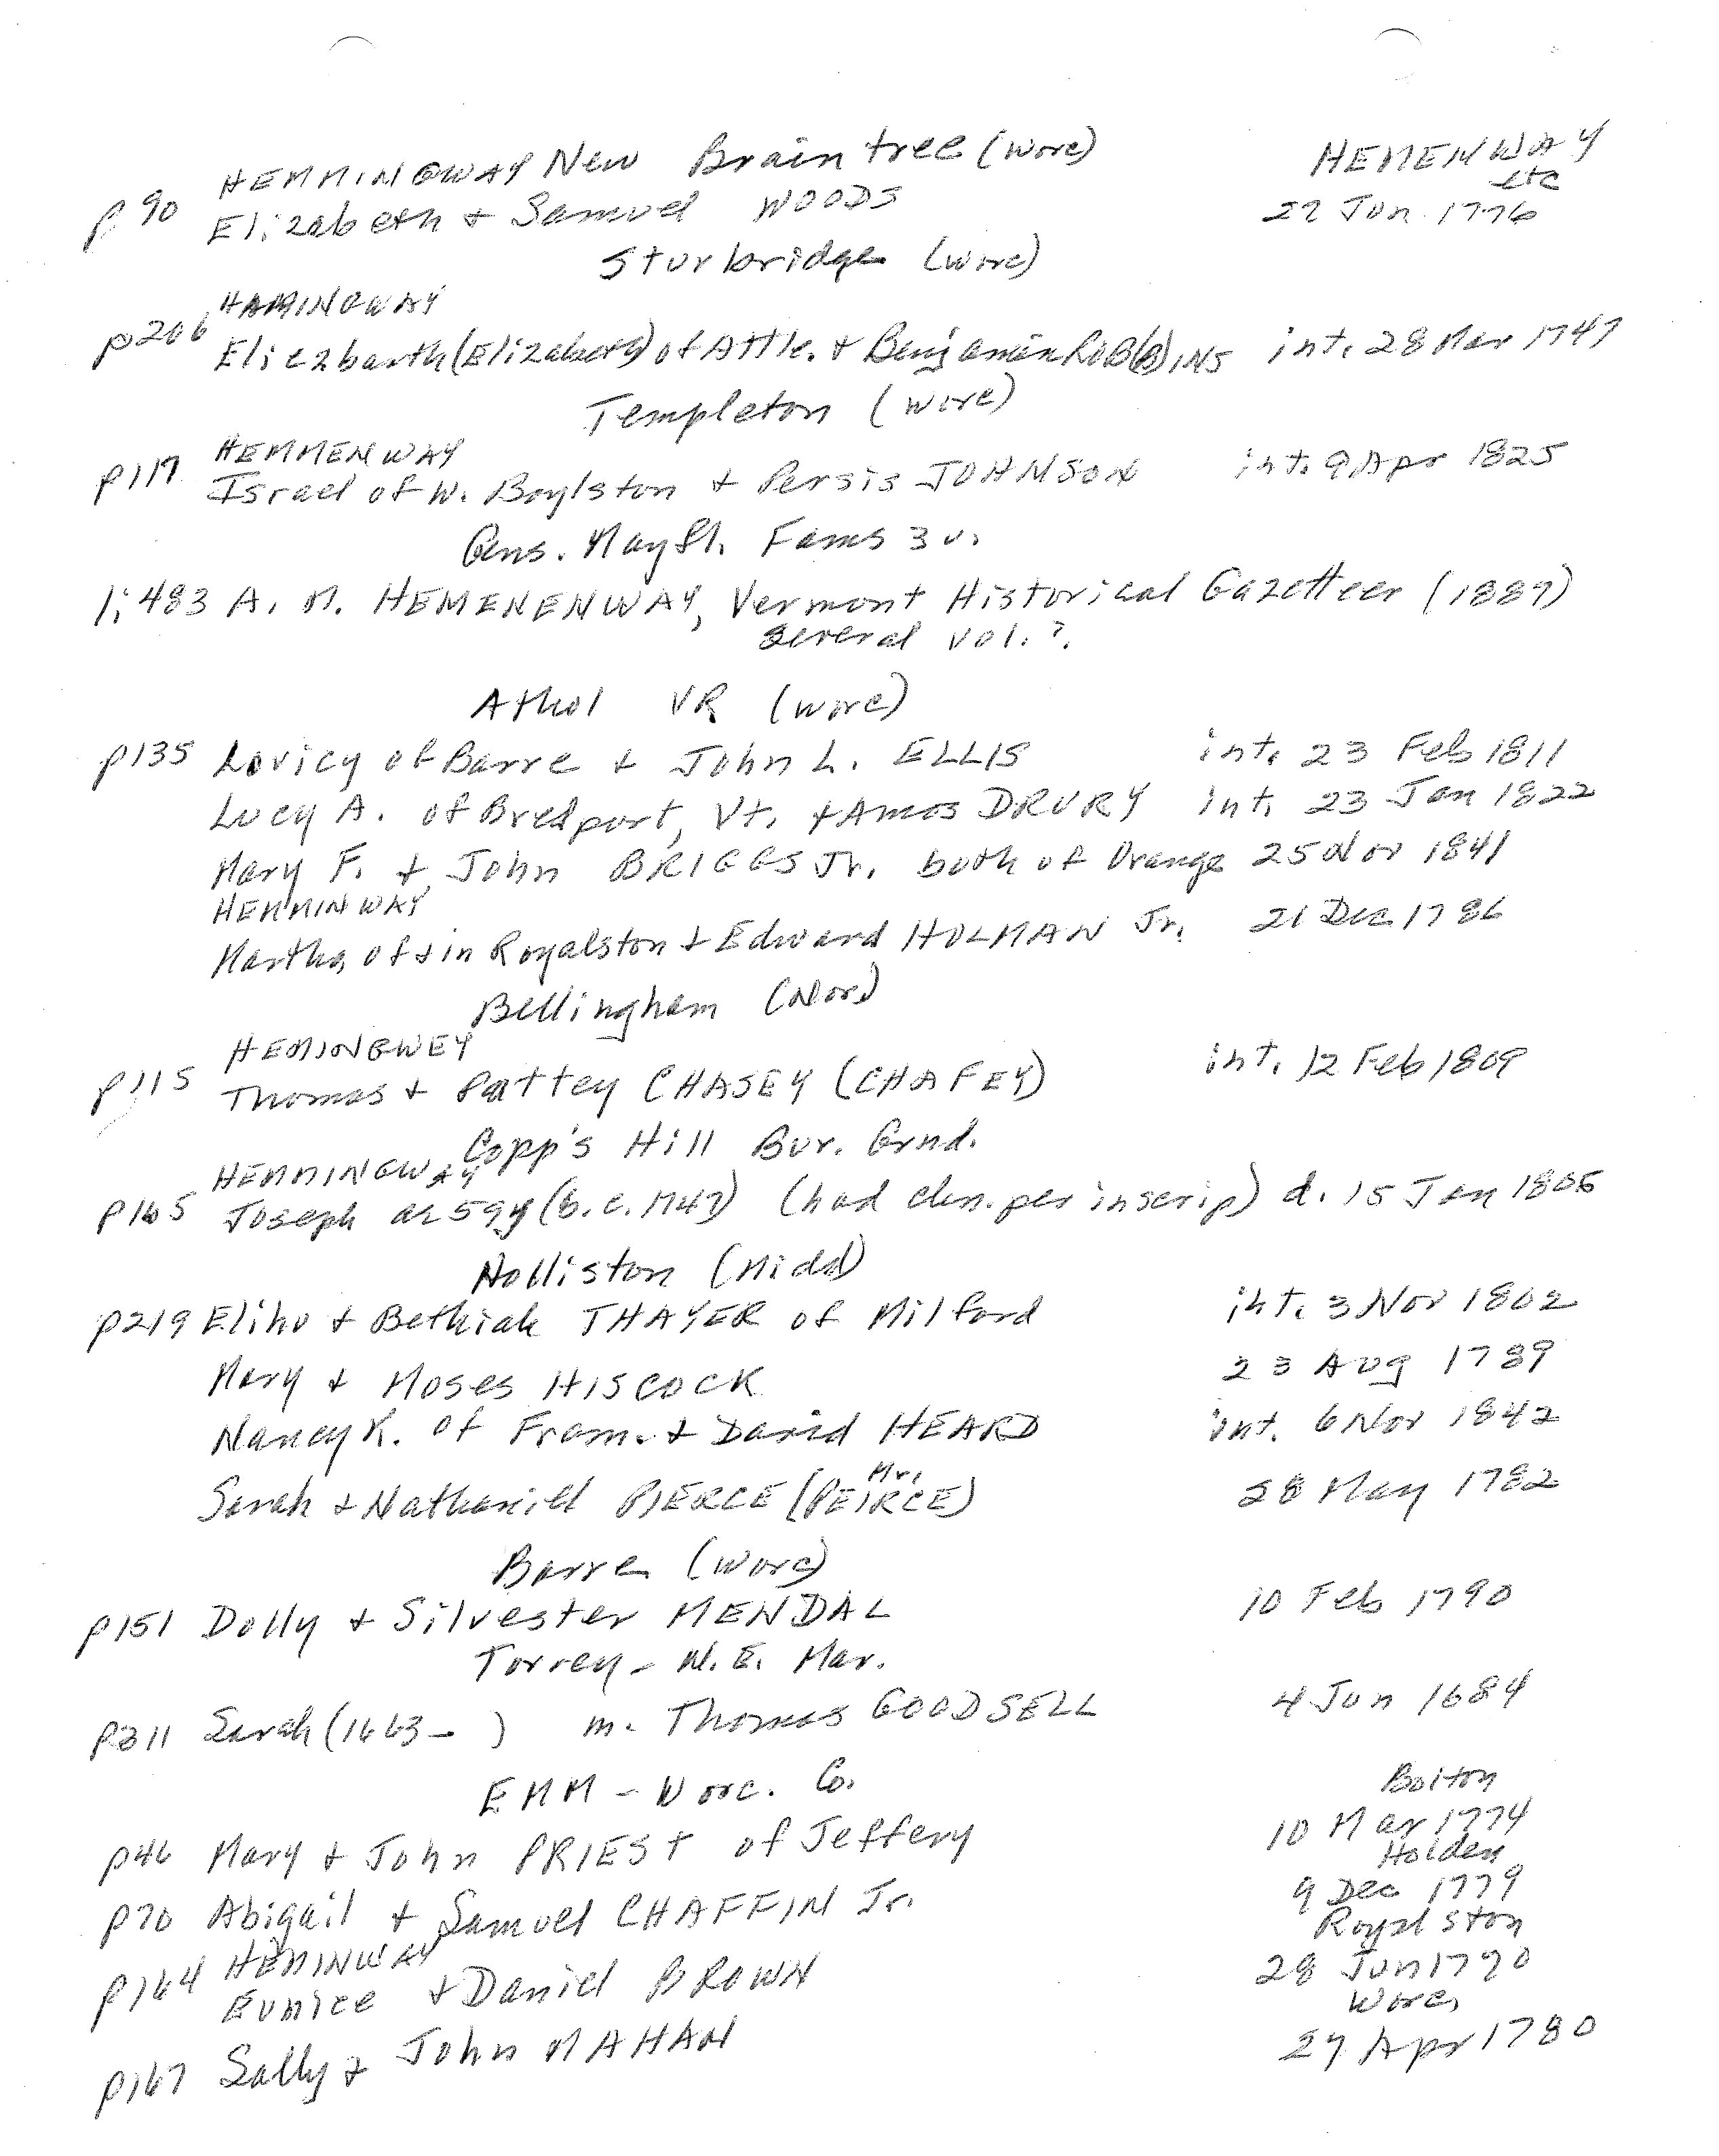 HEMENWAY
etc
HEMMINGWAY New Braintree (Worc)
p90 Elizabeth + Samuel WOODS 27 Jun 1776
Sturbridge (Worc)
HAMINGWAY
p206 Eliezbarth (Elizabeth) of Attle. + Benjamin ROB(B)INS int. 28 Mar 1747
Templeton (Worc)
HEMMENWAY
p117 Israel of W. Boylston + Persis JOHNSON int. 9 Apr 1825
Gens. Mayfl. Fams 3 v.
1:483 A. M. HEMENENWAY, Vermont Historical Gazetteer (1887)
several vol.?.
Athol VR (Worc)
p135 Lovicy of Barre + John L. ELLIS int. 23 Feb 1811
Lucy A. of Bredport, Vt. + Amos DRURY int. 23 Jan 1822
Mary F. + John BRIGGS Jr. both of Orange 25 Nov 1841
HEMMINWAY
Martha, of + in Royalston + Edward HOLMAN Jr. 21 Dec 1786
Bellingham (Nor.)
HEMINGWEY
p115 Thomas + Pattey CHASEY (CHAFEY) int. 12 Feb 1809
Copp's Hill Bur. Grnd.
HEMMINGWAY
p165 Joseph ae 59y (b. c. 1747) (had chn. per inscrip) d. 15 Jan 1806
Holliston (Midd)
p219 Elihu + Bethiah THAYER of Milford int. 3 Nov 1802
Mary + Moses HISCOCK 23 Aug 1789
Nancy K. of Fram. + David HEARD int. 6 Nov 1842
Mr.
Sarah + Nathaniel PIERCE (PEIRCE) 28 May 1782
Barre (Worc)
p151 Dolly + Silvester MENDAL 10 Feb 1790
Torrey - N. E. Mar.
p311 Sarah (1663- ) m. Thomas GOODSELL 4 Jun 1684
EMM - Worc. Co.
Bolton
p46 Mary + John PRIEST of Jeffery 10 Mar 1774
Holden
p70 Abigail + Samuel CHAFFIN Jr. 9 Dec 1779
Royalston
HEMINWAY
p164 Eunice + Daniel BROWN 28 Jun 1790
Worc.
p167 Sally + John MAHAN 27 Apr 1780